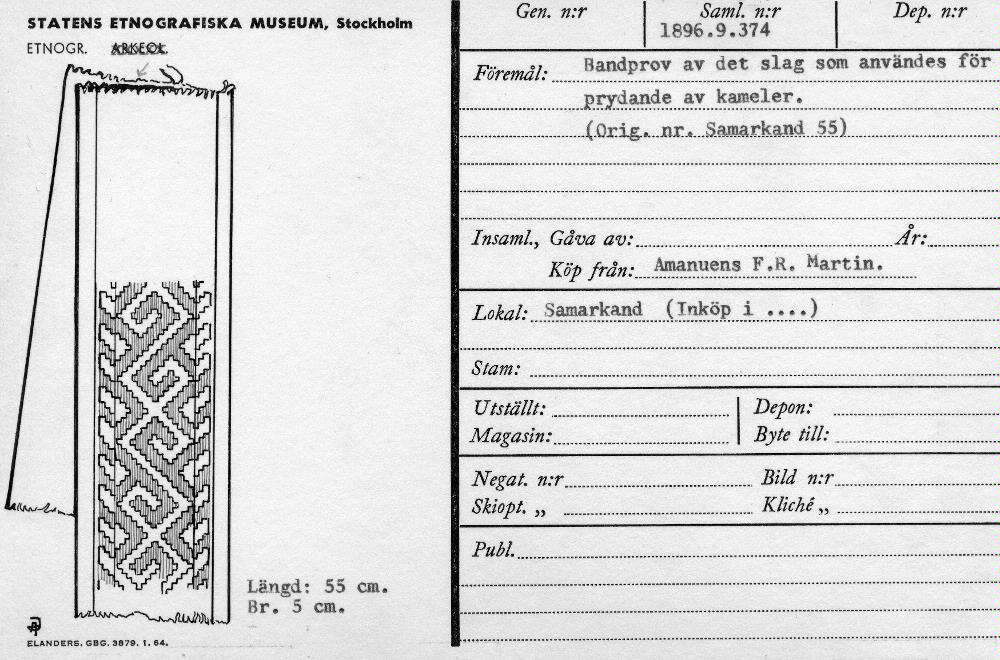 STATENS ETNOGRAFISKA MUSEUM, Stockholm
ETNOGR. ARKEOL.
Längd: 55 cm.
Br. 5 cm.
ELANDERS. GBG. 3879. 1. 64.
Gen. n:r Saml. n:r Dep. n:r
1896.9.374
Föremål: Bandprov av det slag som användes för
prydande av kameler.
(Orig. nr. Samarkand 55)
Insaml., Gåva av: År:
Köp från: Amanuens F.R. Martin.
Lokal: Samarkand (Inköp i ....)
Stam:
Utställt: Depon:
Magasin: Byte till:
Negat. n:r Bild n:r
Skiopt. „ Kliché „
Publ.